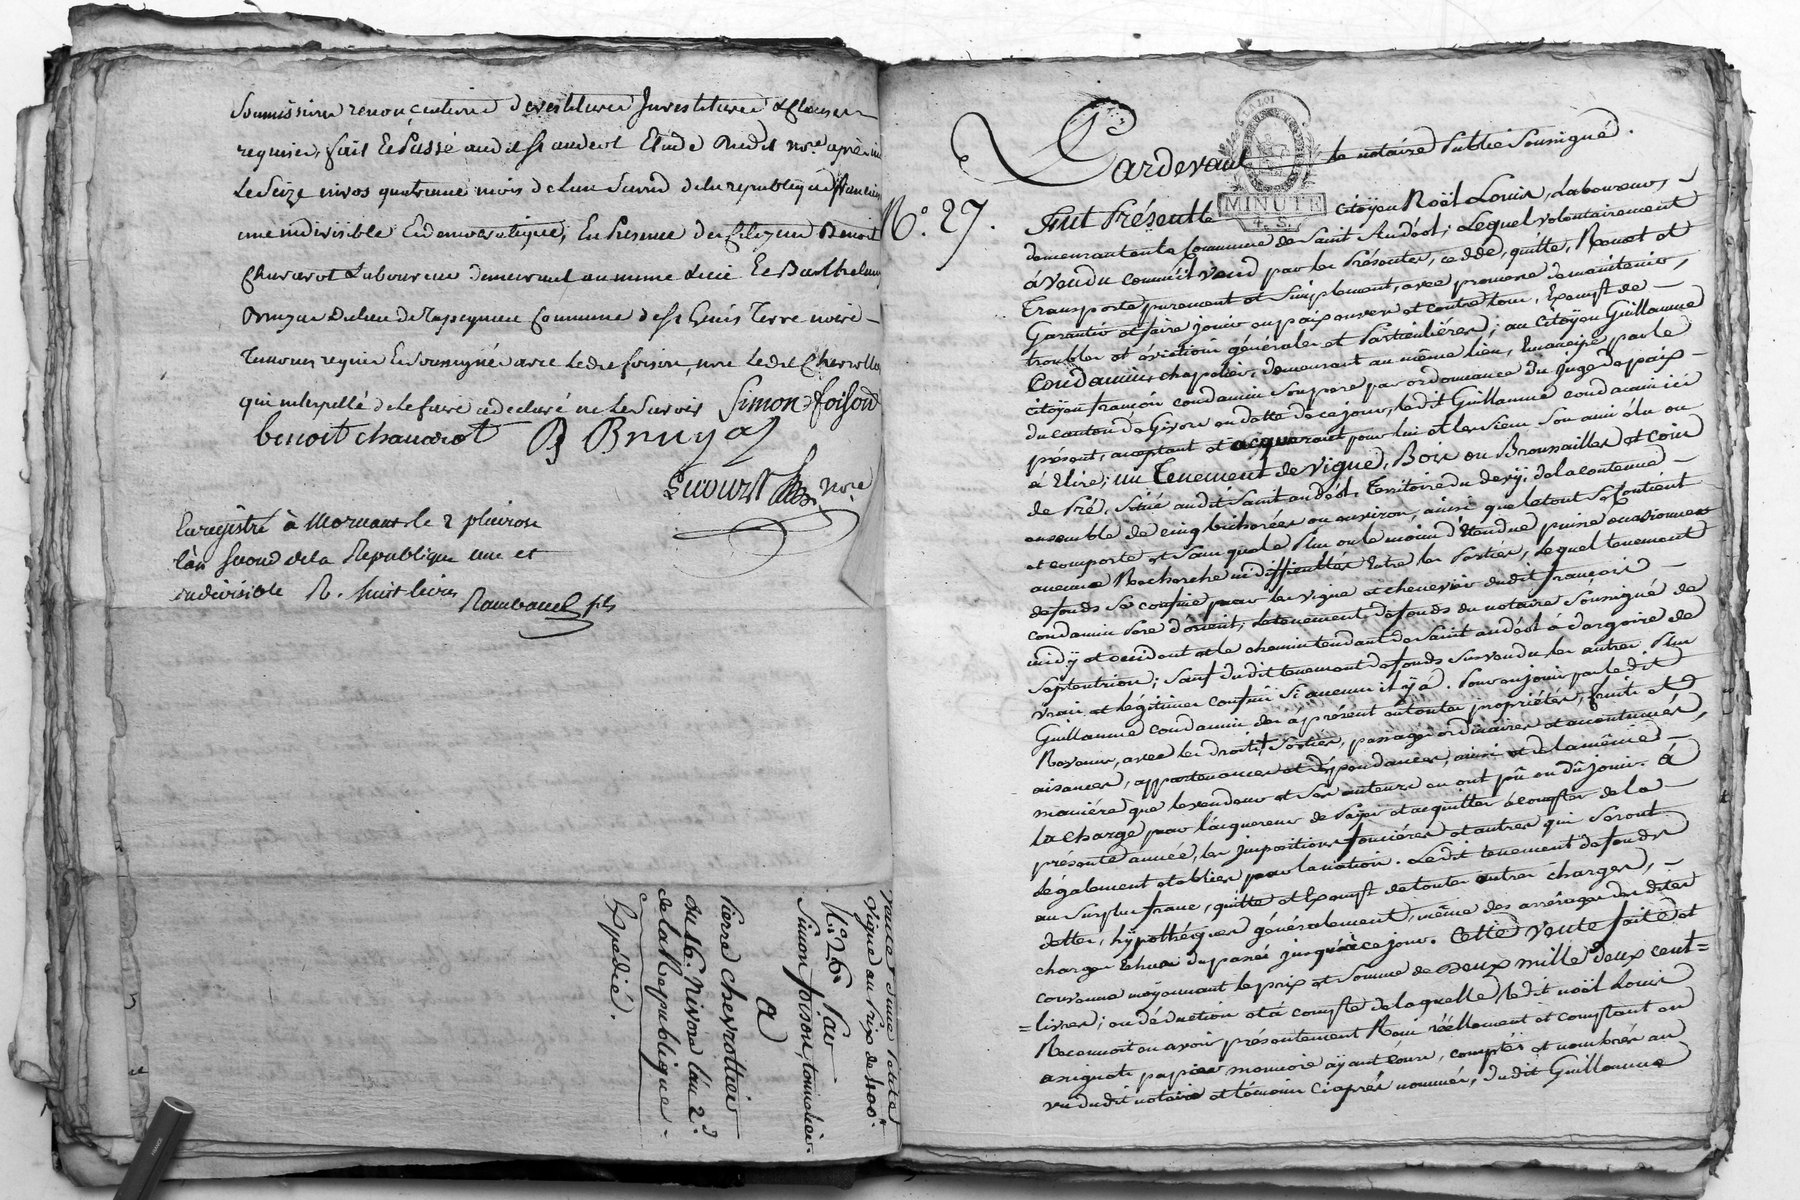 Soumission renonciation devestiture Investiture & clauses
requises, fait Et Passé audit St andeol Etude Dudit Nore. après midi
Le Seize nivos quatrieme mois de lan Second de la republique francaise
une indivisible Et democratique, En Presence des Citoyens Benoit
Chavarot Laboureur demeurant au meme Lieu Et Barthelemy
Bruyas du lieu de Commune de St Genis Terre noire
Temoins requis Et Soussignés avec Ledit foison, non Ledit Chevrottier
qui interpellé de le faire a declaré ne Le Savoir Simon foison
benoit chavarot B Bruyas
Nore.
Enregistré à Mornant le 2 pluviose
l'an Second de la Republique une et
indivisible R. huit livres
Rambaud fils
Vente d'une Petite
Vigne au Prix de 400#.
N.° 26. Par
Simon foison, tonnelier.
A
Pierre chevrottier
du 16. Nivose l'an 2.d
de la Republique.
Expédié.
N.° 27.
A LA LOI
MINUTE
4. S.
Pardevant le notaire Public Soussigné.
Fut Présent le Citoyen Noël Louis, Laboureur,
demeurant en la Commune de Saint Andéol; Lequel volontairement
à vendu comme il vend par les Présentes, cedde, quitte, Remet et
Transporte purement et Simplement, avec promesse de maintenir,
Garantir et faire jouir en paix envers et contre tous, Exempt de
troubles et évictions générales et Particulières; au Citoyen Guillaume
Condamin, chapelier, demeurant au même lieu, Emancipé par le
Citoyen françois condamin Son pere par ordonnance du juge de paix
du canton de Givors en datte de ce jour, ledit Guillaume condamin ici
présent, acceptant et acquerant pour lui et les Siens Son ami élu ou
à Elire; un Tenement de Vigne, Bois ou Broussailles et coin
de Pré, Situé audit Saint andéol, Territoire du de la contenue
ensemble de cinq bicherées ou environ, ainsi que le tout Se contient
et comporte et Sans que le Plus ou le moins d'étendue puisse occasionner
aucune Recherche ni difficultés Entre les Parties, Lequel tenement
de fonds Se confine par les vigne et chenevier dudit françois
condamin Pere d'orient, le tenement de fonds du notaire Soussigné de
midÿ et occident et le chemin tendant de Saint andéol à dargoire de
Septentrion; Sauf dudit tenement de fonds Susvendu les autres Plus
vrais et légitimes confins Si aucuns il ÿ à. Pour en jouir par ledit
Guillaume condamin des a présent en toutes propriétés, fruits et
Revenus, avec les droits Sorties, passages ordinaires et accoutumés,
aisances, appartenances et dépendances, ainsi et de la même
manière que le vendeur et Ses auteurs en ont pû ou dû jouir. à
la charge par l'acquereur de Payer et acquitter à compter de la
présente année, les Impositions foncières et autres qui Seront
Légalement etablies pour la nation. Ledit tenement de fonds
au Surplus franc, quitte et Exempt de toutes autres charges,
dettes, hÿpothéques généralement, même des arrérages desdites
charges Echues du passé jusqu'à ce jour. Cette vente faite et
convenue moÿennant le prix et Somme de Deux mille deux cent=
=livres; en déduction et à compte de laquelle, ledit noël Louis
Reconnoit en avoir présentement Recu réellement et comptant en
assignats papier monnoie aÿant cours, comptés et nombrés au
vu dudit notaire et témoins ci après nommés, dudit Guillaume